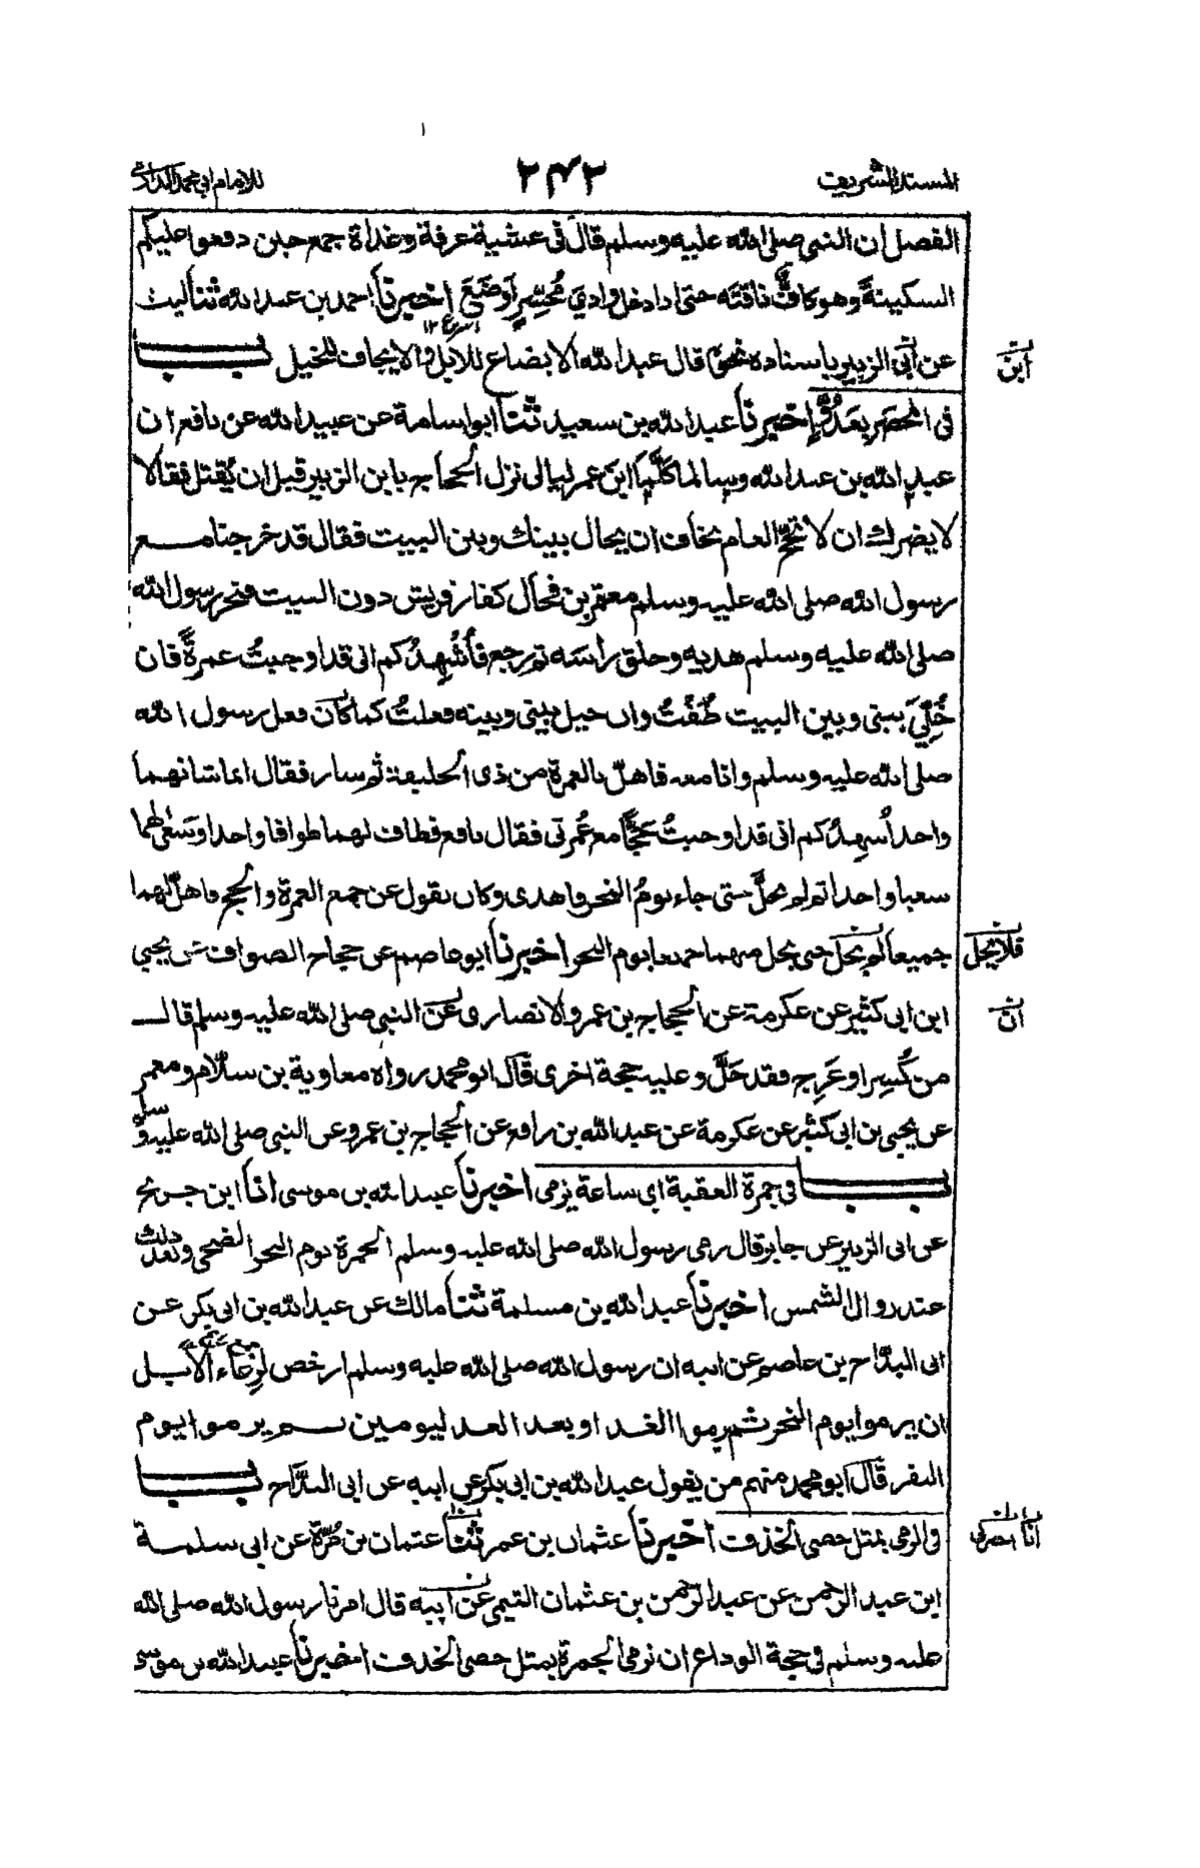 المسند الشريف
٢٤٢
للامام ابي محمد الدارمي
الفضل ان النبي صلى الله عليه وسلم قال في عشية عرفة وغداة جمع حين دفعوا عليكم
السكينة وهو كافٌّ ناقتَه حتى اذا دخل وادي مُحَسِّرٍ اَوضَعَ اخبرنا احمد بن عبد الله ثنا ليث
اسرع ١٢
عن ابي الزبير باسناده نحوه قال عبد الله الايضاع للابل والايجاف للخيل باب
ابن
في المحصر بعدُوٍّ اخبرنا عبد الله بن سعيد ثنا ابو اسامة عن عبيد الله عن نافع ان
عبد الله بن عبد الله وسالما كلَّما ابن عمر ليالي نزل الحجاج بابن الزبير قبل ان يُقتل فقالا
لا يضرك ان لا تحجَّ العام نخاف ان يحال بينك وبين البيت فقال قد خرجنا مع
رسول الله صلى الله عليه وسلم معتمرين فحال كفار قريش دون البيت فنحر رسول الله
صلى الله عليه وسلم هديه وحلق رأسَه ثم رجع فأُشْهِدُكم اني قد اوجبتُ عمرةً فان
خُلِّيَ بيني وبين البيت طُفْتُ وان حيل بيني وبينه فعلتُ كما كان فعل رسول الله
صلى الله عليه وسلم وانا معه فاهلّ بالعمرة من ذي الحليفة ثم سار فقال انما شانهما
واحد اُشهِدُكم اني قد اوجبتُ حَجًّا مع عُمرتي فقال نافع فطاف لهما طوافا واحدا وسَعى لهما
سعيا واحدا ثم لم يحلَّ حتى جاء يومُ النحر فاهدى وكان يقول من جمع العمرة والحج فاهلّ لهما
جميعا لم يحل حتى يحل منهما جميعا يوم النحر اخبرنا ابو عاصم عن حجاج الصواف عن يحيي
فلا يحل
ابن ابي كثير عن عكرمة عن الحجاج بن عمرو الانصاري عن النبي صلى الله عليه وسلم قال
ان
من كُسِر او عَرِج فقد حَلَّ وعليه حجة اخرى قال ابو محمد رواه معاوية بن سلّام ومعمر
عن يحيي بن ابي كثير عن عكرمة عن عبد الله بن رافع عن الحجاج بن عمرو عن النبي صلى الله عليه وسلم
باب في جمرة العقبة اي ساعة يرمى اخبرنا عبيد الله بن موسى انا ابن جريج
عن ابي الزبير عن جابر قال رمى رسول الله صلى الله عليه وسلم الجمرة يوم النحر الضحى وبعد ذلك
عند زوال الشمس اخبرنا عبد الله بن مسلمة ثنا مالك عن عبد الله بن ابي بكر عن
ابي البدّاح بن عاصم عن ابيه ان رسول الله صلى الله عليه وسلم ارخص لرِعَاء الابل
ان يرموا يوم النحر ثم يرموا الغد او بعد الغد ليومين ثم يرموا يوم
النفر قال ابو محمد منهم من يقول عبد الله بن ابي بكر عن ابيه عن ابي البدّاح باب
في الرمي بمثل حصى الخذف اخبرنا عثمان بن عمر ثنا عثمان بن مُرّة عن ابي سلمة
انا اخبرني
ابن عبد الرحمن عن عبد الرحمن بن عثمان التيمي عن ابيه قال امرنا رسول الله صلى الله
عليه وسلم في حجة الوداع ان نرمي الجمرة بمثل حصى الخذف اخبرنا عبيد الله بن موسى